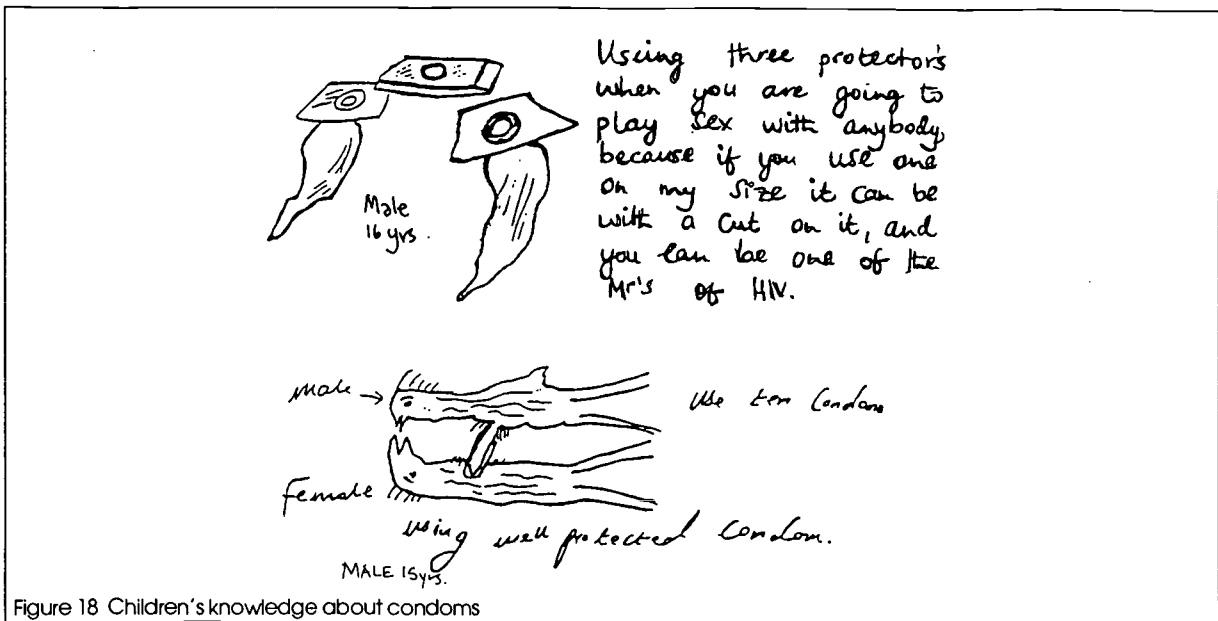 Useing three protector's
when you are going to
play sex with anybody,
because if you use one
on my size it can be
with a cut on it, and
you can be one of the
Mr's of HIV.
Male
16 yrs.
male →
use ten Condom
female
using well protected Condom.
MALE 15yrs.
Figure 18 Children's knowledge about condoms